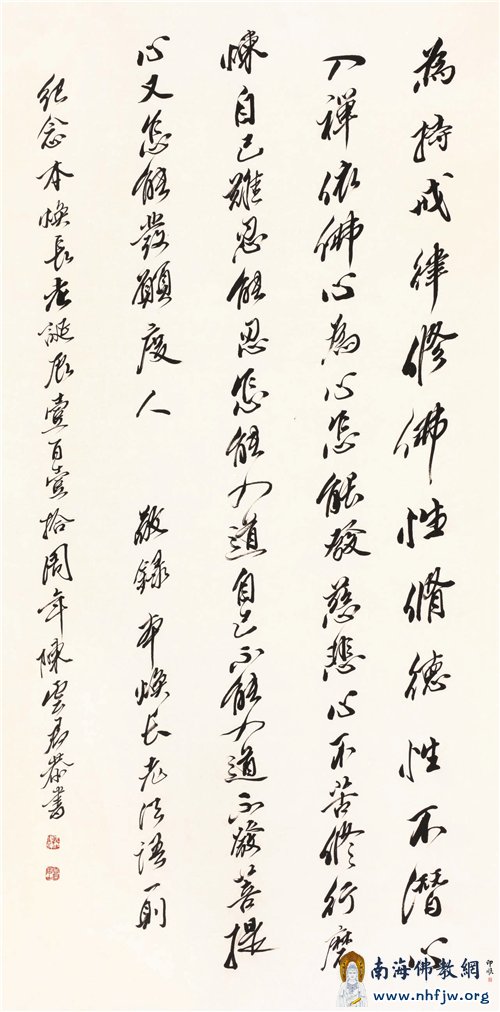 為持戒律修佛性脩德性不潛心
入禪依佛心為心怎能發慈悲心不苦修行磨
煉自己難忍能忍怎能办道自己不能办道不發菩提
心又怎能發願度人 敬錄本煥長老法語一則
紀念本煥長老誕辰壹百壹拾周年陳雲君恭書
南海佛教網
www.nhfjw.org